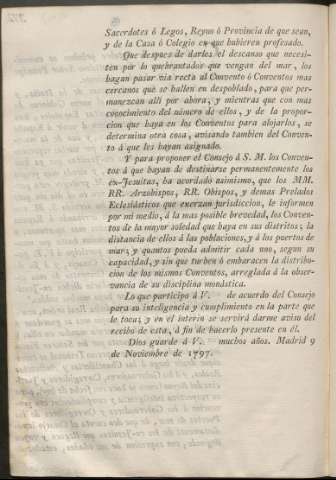 Sacerdotes ó Legos, Reyno ó Provincia de que sean,
y de la Casa ó Colegio en que hubieren profesado.
Que despues de darles el descanso que necesi-
ten por lo quebrantados que vengan del mar, los
hagan pasar via recta al Convento ó Conventos mas
cercanos que se hallen en despoblado, para que per-
manezcan alli por ahora, y mientras que con mas
conocimiento del número de ellos, y de la propor-
cion que haya en los Conventos para alojarlos, se
determina otra cosa, avisando tambien del Conven-
to á que les hayan asignado.
Y para proponer el Consejo á S. M. los Conven-
tos á que hayan de destinarse permanentemente los
ex-Jesuitas, ha acordado asimismo, que los MM.
RR. Arzobispos, RR. Obispos, y demas Prelados
Eclesiásticos que exerzan jurisdiccion, le informen
por mi medio, á la mas posible brevedad, los Conven-
tos de la mayor soledad que haya en sus distritos; la
distancia de ellos á las poblaciones, y á los puertos de
mar; y quantos pueda admitir cada uno, segun su
capacidad, y sin que turben ó embaracen la distribu-
cion de los mismos Conventos, arreglada á la obser-
vancia de su disciplina monástica.
Lo que participo á V. de acuerdo del Consejo
para su inteligencia y cumplimiento en la parte que
le toca; y en el interin se servirá darme aviso del
recibo de esta, á fin de hacerlo presente en él.
Dios guarde á V. muchos años. Madrid 9
de Noviembre de 1797.